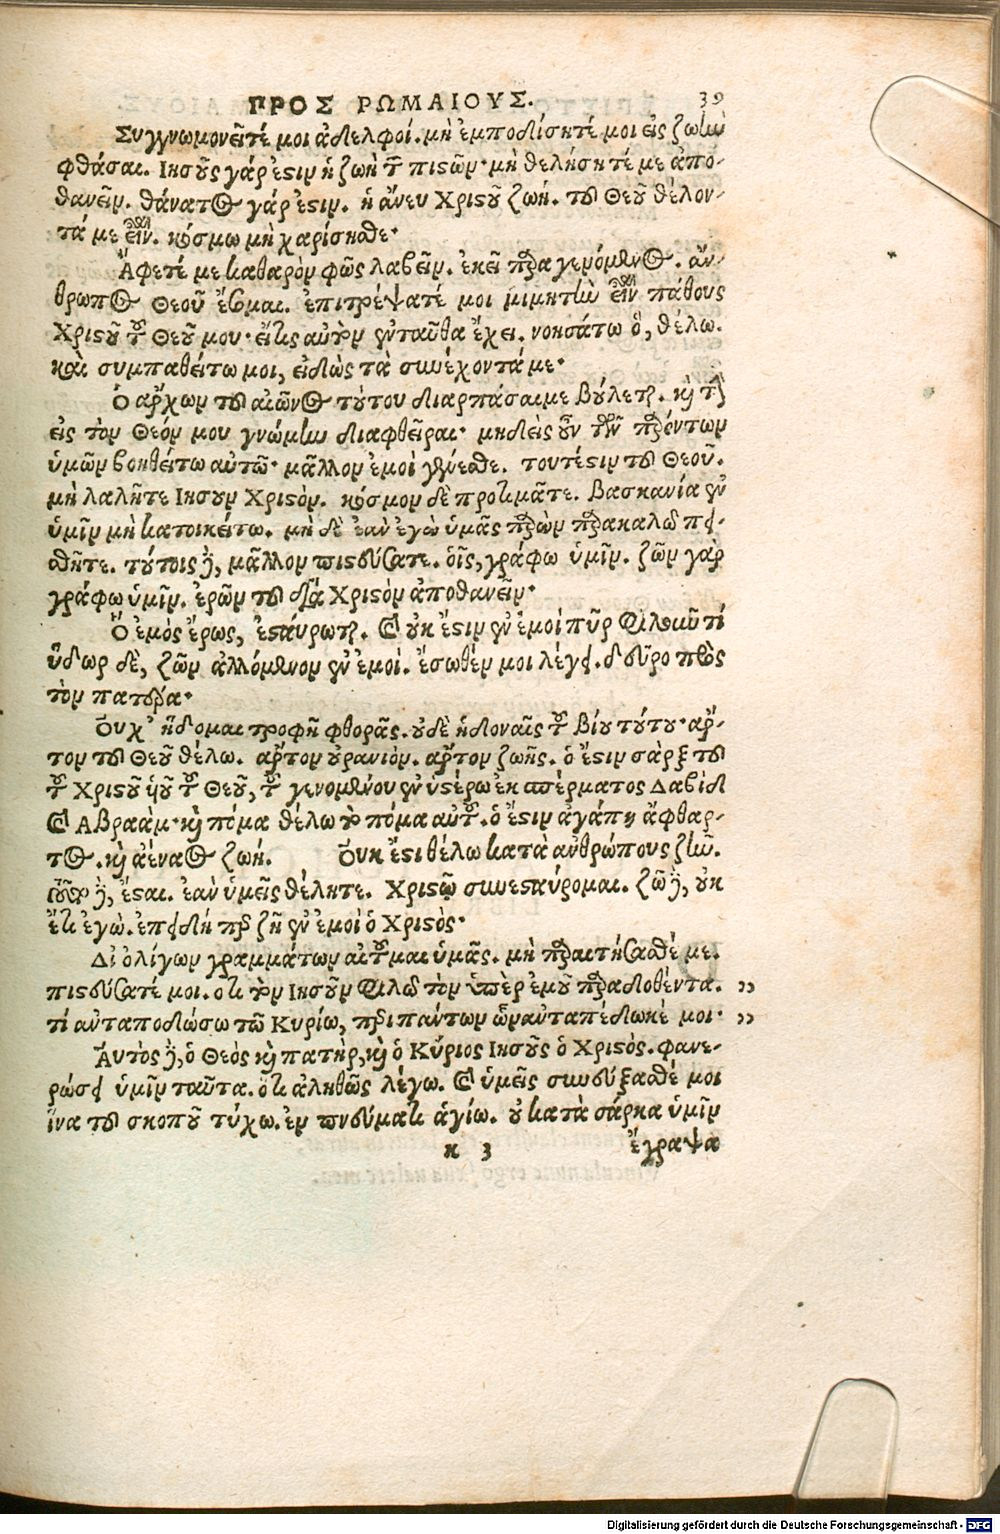 ΠΡΟΣ ΡΩΜΑΙΟΥΣ. 39
Συγγνωμονεῖτέ μοι ἀδελφοί. μὴ ἐμποδίσητέ μοι εἰς ζωὴν
φθάσαι. Ιησοῦς γάρ ἐστιν ἡ ζωὴ τῶν πιστῶν· μὴ θελήσητέ με ἀπο-
θανεῖν. θάνατος γάρ ἐστιν. ἡ ἄνευ Χριστοῦ ζωή. τοῦ Θεοῦ θέλον-
τά με εἶναι. κόσμω μὴ χαρίσησθε·
Ἄφετέ με καθαρὸν φῶς λαβεῖν. ἐκεῖ παραγενόμενος. ἄν-
θρωπος Θεοῦ ἔσομαι. ἐπιτρέψατέ μοι μιμητὴν εἶναι πάθους
Χριστοῦ τοῦ Θεοῦ μου· εἴ τις αὐτὸν ἐν ταῦθα ἔχει. νοησάτω ὅ, θέλω.
καὶ συμπαθείτω μοι, εἰδὼς τὰ συνέχοντά με·
Ὁ ἄρχων τοῦ αἰῶνος τούτου διαρπάσαι με βούλεται. καὶ τὴν
εἰς τὸν Θεόν μου γνώμην διαφθεῖραι· μηδεὶς οὖν τῶν παρόντων
ὑμῶν βοηθείτω αὐτῶ· μᾶλλον ἐμοὶ γένεσθε. τουτέστιν τοῦ Θεοῦ.
μὴ λαλῆτε Ιησουν Χριστὸν. κόσμον δὲ προτιμᾶτε. βασκανία ἐν
ὑμῖν μὴ κατοικείτω. μὴ δὲ ἐαν ἐγὼ ὑμᾶς παρὼν παρακαλῶ πεί-
σθητε. τούτοις δὲ, μᾶλλον πιστεύσατε. οἷς, γράφω ὑμῖν. ζῶν γὰρ
γράφω ὑμῖν. ἐρῶν τοῦ διὰ Χριστὸν ἀποθανεῖν·
Ὁ ἐμὸς ἔρως, ἐσταύρωται. καὶ οὐκ ἔστιν ἐν ἐμοὶ πῦρ φιλοῦν τί
ὕδωρ δὲ, ζῶν ἀλλόμενον ἐν ἐμοί. ἔσωθέν μοι λέγει. δεῦρο πρὸς
τὸν πατέρα·
Οὐχ’ ἥδομαι τροφῆ φθορᾶς. οὐδὲ ἡδοναῖς τοῦ βίου τούτου· ἄρ-
τον τοῦ Θεοῦ θέλω. ἄρτον οὐρανιὸν. ἄρτον ζωῆς. ὁ ἔστιν σὰρξ τοῦ
τοῦ Χριστοῦ υἱοῦ τοῦ Θεοῦ, τοῦ γενομένου ἐν ὑστέρω ἐκ σπέρματος Δαβὶδ
καὶ Αβραὰμ· καὶ πόμα θέλω τὸ πόμα αὐτοῦ. ὁ ἔστιν ἀγάπη ἄφθαρ-
τος. καὶ ἀέναος ζωή. Οὐκ ἔτι θέλω κατὰ ἀνθρώπους ζῆν.
τοῦτο δὲ, ἔσται. ἐαν ὑμεῖς θέλητε. Χριστῷ συνεσταύρομαι. ζῶ δὲ, οὐκ
ἔτι ἐγὼ. ἐπειδή περ ζῆ ἐν ἐμοὶ ὁ Χριστὸς·
Δἰ ὀλίγων γραμμάτων αἰτοῦμαι ὑμᾶς. μὴ παραιτήσασθέ με.
πιστεύσατέ μοι. ὅτι τὸν Ιησοῦν φιλῶ τὸν ὑπὲρ ἐμοῦ παραδοθέντα. ,,
τί ἀνταποδώσω τῶ Κυρίω, περὶ πάντων ὧν ἀνταπέδωκέ μοι· ,,
Αὐτὸς δὲ, ὁ Θεὸς καὶ πατὴρ, καὶ ὁ Κύριος Ιησοῦς ὁ Χριστὸς. φανε-
ρώσει ὑμῖν ταῦτα. ὅτι ἀληθῶς λέγω. καὶ ὑμεῖς συνεύξασθέ μοι
ἵνα τοῦ σκοποῦ τύχω. ἐν πνεύματι ἁγίω. οὐ κατὰ σάρκα ὑμῖν
κ 3 ἔγραψα
Digitalisierung gefördert durch die Deutsche Forschungsgemeinschaft - DFG